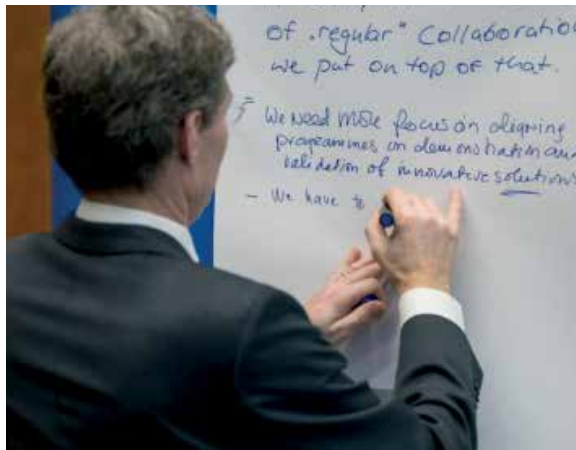 of "regular" Collaboration
we put on top of that.
We need more focus on aligning
programmes on demonstration and
validation of innovative solutions
- We have to